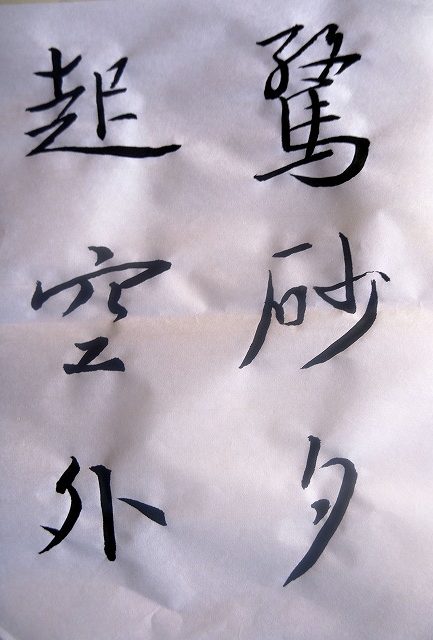 驚砂夕
起空外